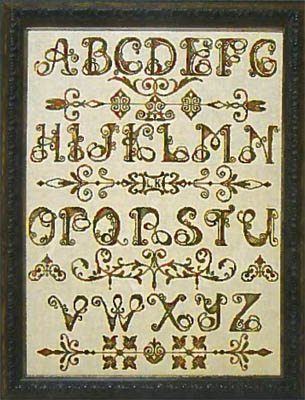 ABCDEFG
HIJKLMN
LK
OPQRSTU
VWXYZ